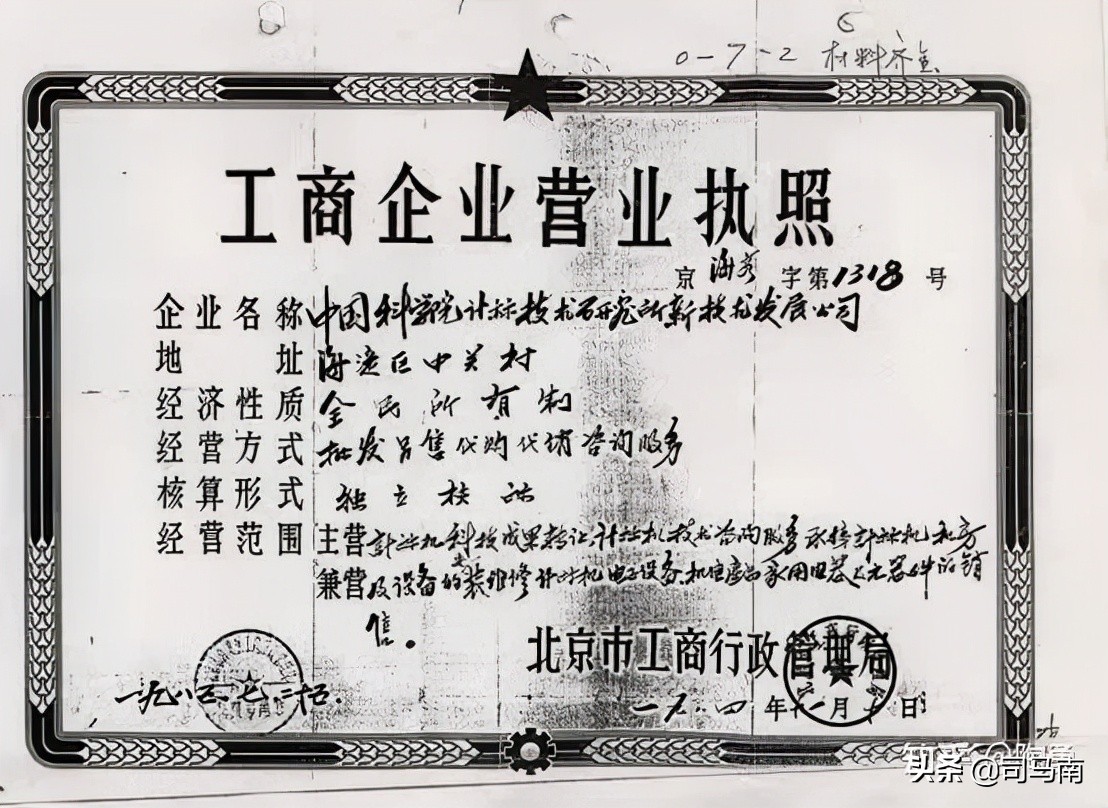 0-7-2 材料齐全
工商企业营业执照
京海 字第1318号
企业名称 中国科学院计标技术研究所新技术发展公司
地址 海淀区中关村
经济性质 全民所有制
经营方式 批发另售代购代销咨询服务
核算形式 独立核祘
经营范围 主营 计祘机科技成果转让计祘机技术咨询服务承接计祘机机房
兼营 及设备的装维修计祘机电子设备机电产品家用电器及元器件的销
售。
北京市工商行政管理局
一九八五.七.二十五.
一九八四年十一月 日
头条 @司马南